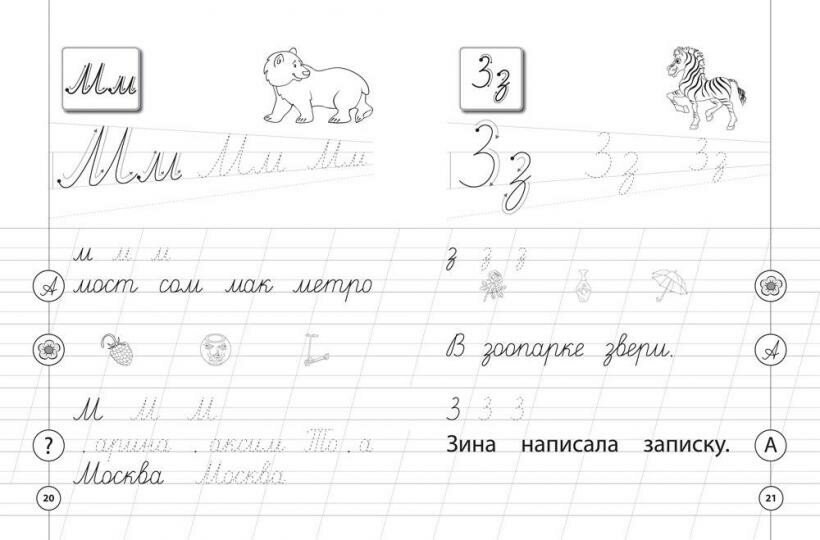 Мм
Мм Мм Мм
м м м
А мост сом мак метро
М М М
? . арина . аксим То . а
Москва Москва
20
Зз
Зз Зз Зз
з з з
В зоопарке звери. А
З З З
Зина написала записку. А
21